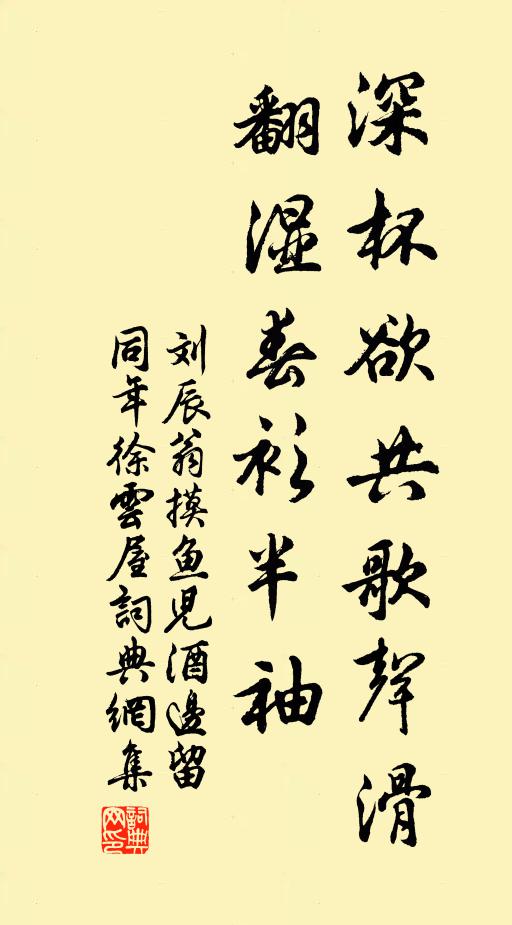 深杯欲共歌聲滑
翻湿春衫半袖
刘辰翁摸鱼児酒邊留
同年徐雲屋詞典網集
詞典网印